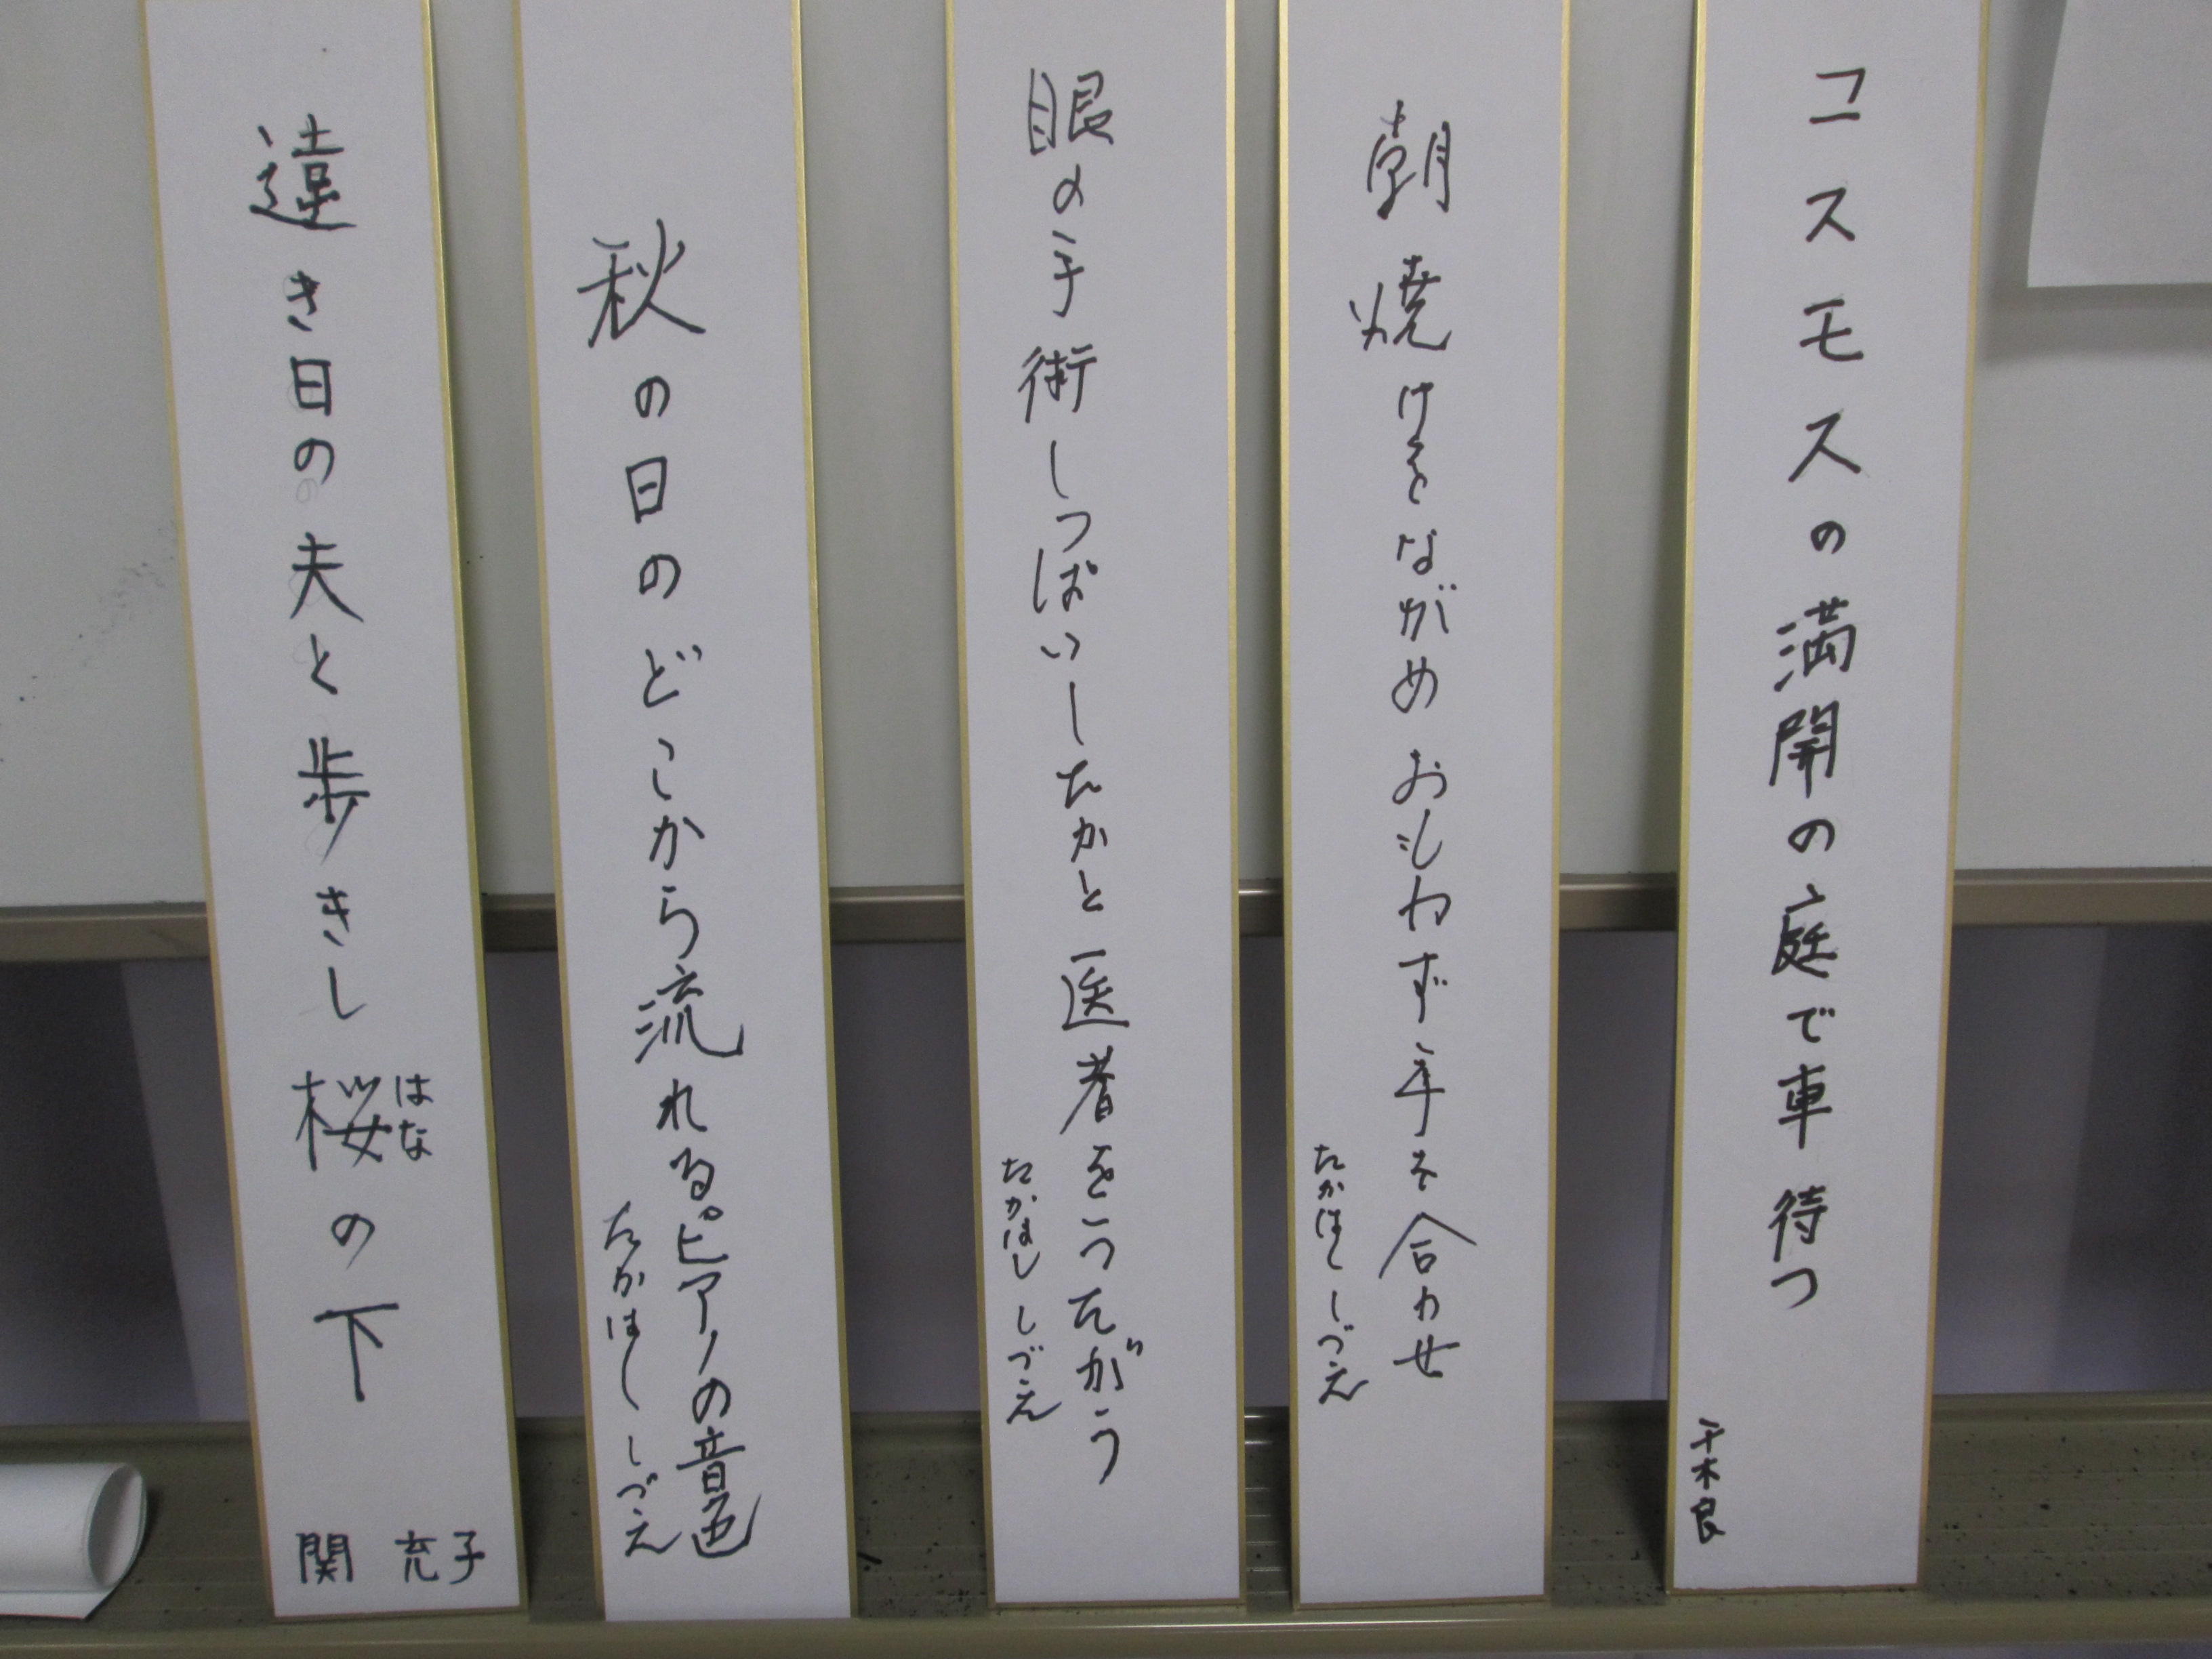 コスモスの満開の庭で車待つ
千木良
朝焼けをながめおもわず手を合わせ
たかはし しづえ
眼の手術しっぱいしたかと医者をうたがう
たかはし しづえ
秋の日のどこから流れるピアノの音色
たかはし しづえ
遠き日の夫と歩きし桜の下
はな
関 充子